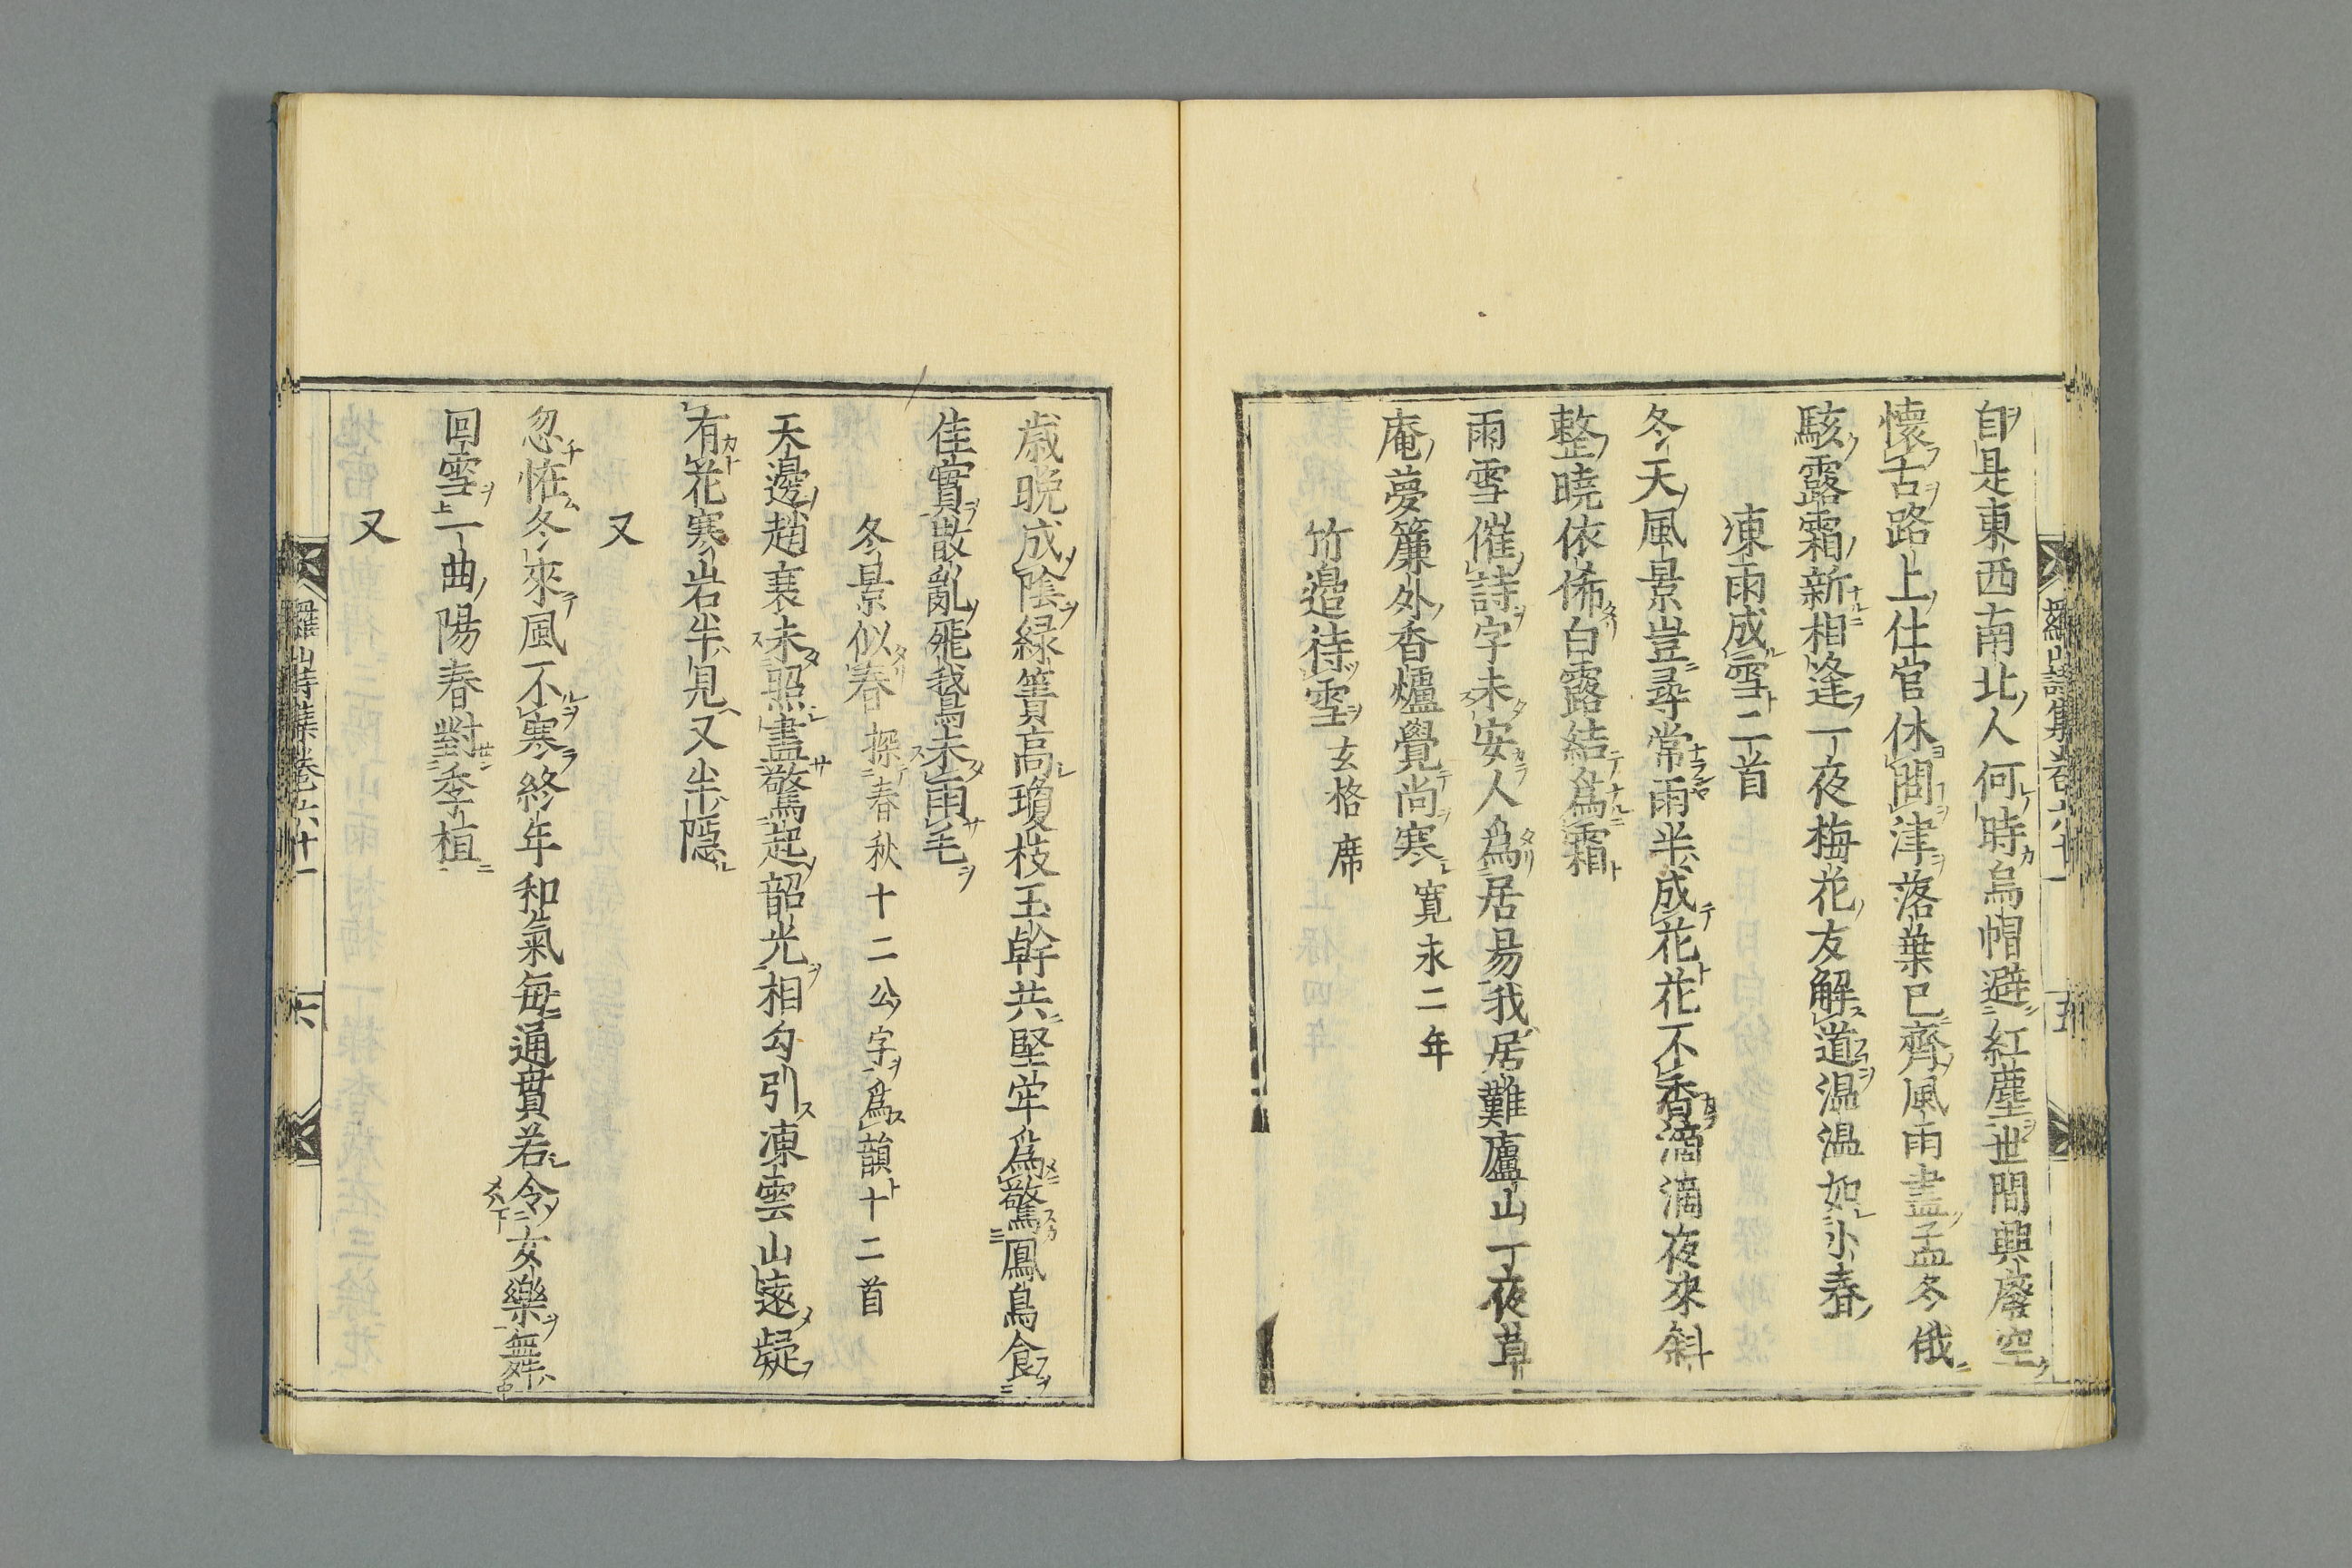 自是東西南北人何時烏帽避紅塵世間興廢空
懷古路上仕官休問津落葉已齊風雨盡孟冬俄
駭露霜新相逢一夜梅花友解道温温如小春
凍雨成雪二首
冬天風景豈尋常雨半成花花不香滴滴夜來斜
整曉依俙白露結爲霜
雨雪催詩字未安人爲居易我居難廬山一夜草
庵夢簾外香爐覺尚寒 寛永二年
竹邉待雪 玄格席
歳晩成陰緑簣高瓊枝玉幹共堅牢爲驚鳳鳥食
佳實散亂飛我鳥未雨毛
冬景似春 探春秋十二公字爲韻十二首
天邊趙衰未照盡驚起韶光相勾引凍雲山遠疑
有花寒岩半見又半隱
又
忽恠冬來風不寒終年和氣毎通貫若令女樂無舞
回雪一曲陽春對季桓
又
羅山詩集卷六十一 五
羅山詩集卷六十一 六